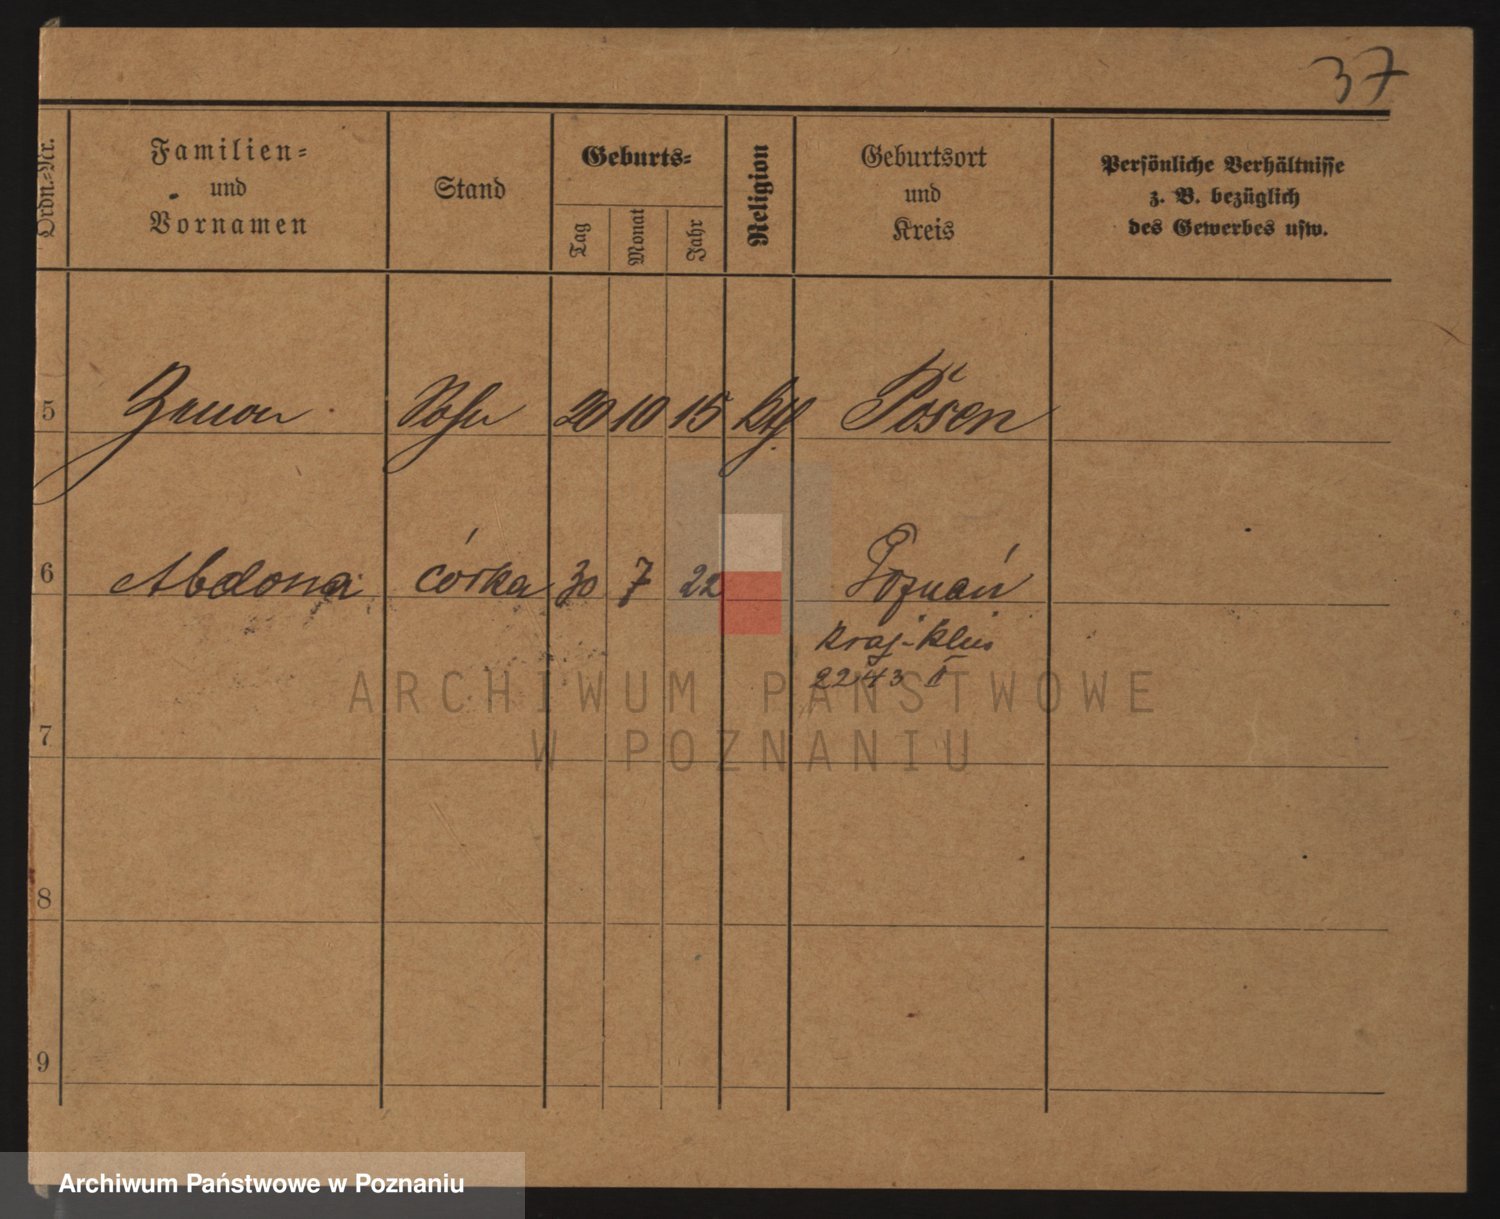 37
Ordn.-Nr.
Familien-
und
Vornamen
Stand
Geburts-
Tag
Monat
Jahr
Religion
Geburtsort
und
Kreis
Persönliche Verhältnisse
z. B. bezüglich
des Gewerbes usw.
5 Zenon Sohn 20 10 15 kth Posen
6 Abdona córka 30 7 22 Poznań
2243 II
7
8
9
ARCHIWUM PAŃSTWOWE
W POZNANIU
Archiwum Państwowe w Poznaniu